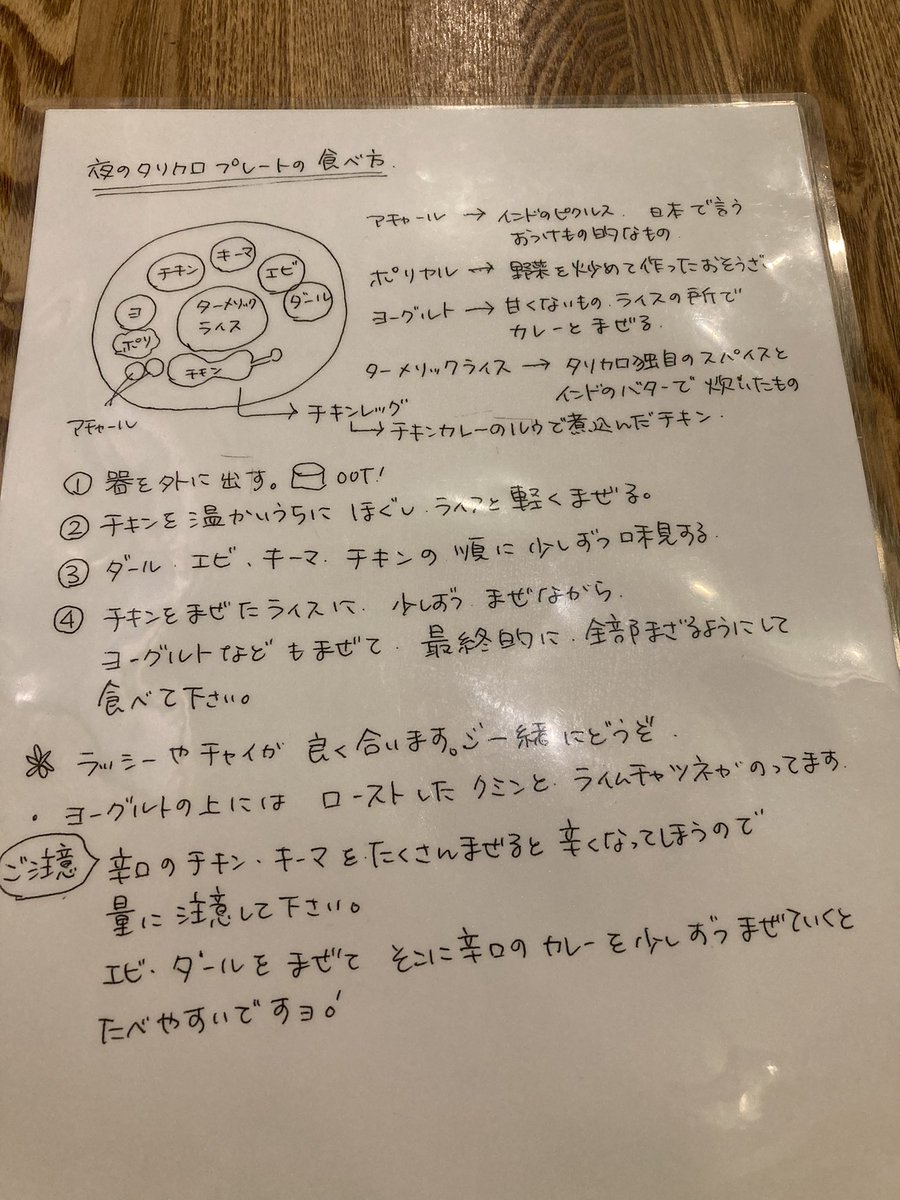 夜のタリカロプレートの食べ方.
キーマ
チキン
エビ
ダール
ヨ
ターメリック
ライス
ポリ
チキン
アチャール
チキンレッグ
→チキンカレーのルウで煮込んだチキン.
アチャール → インドのピクルス. 日本で言う
おつけもの的なもの.
ポリヤル → 野菜を炒めて作ったおそうざい
ヨーグルト → 甘くないもの.ライスの所で
カレーとまぜる.
ターメリックライス → タリカロ独自のスパイスと
インドのバターで炊いたもの
① 器を外に出す。 OUT!
② チキンを温かいうちに ほぐし.ライスと軽くまぜる。
③ ダール.エビ、キーマ.チキンの順に少しずつ味見する.
④ チキンをまぜたライスに.少しずつ まぜながら.
ヨーグルトなどもまぜて.最終的に.全部まざるようにして
食べて下さい。
ラッシーやチャイが良く合います。ご一緒にどうぞ.
・ヨーグルトの上には ローストしたクミンと.ライムチャツネがのってます.
ご注意 辛口のチキン・キーマを.たくさんまぜると辛くなってしまうので
量に注意して下さい。
エビ・ダールをまぜて そこに辛口のカレーを少しずつまぜていくと
たべやすいですョ。!